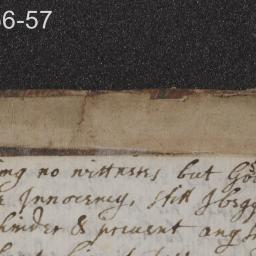 56-57
ing no wittness, but God
Innocency, still I begg
hinder & prevent any